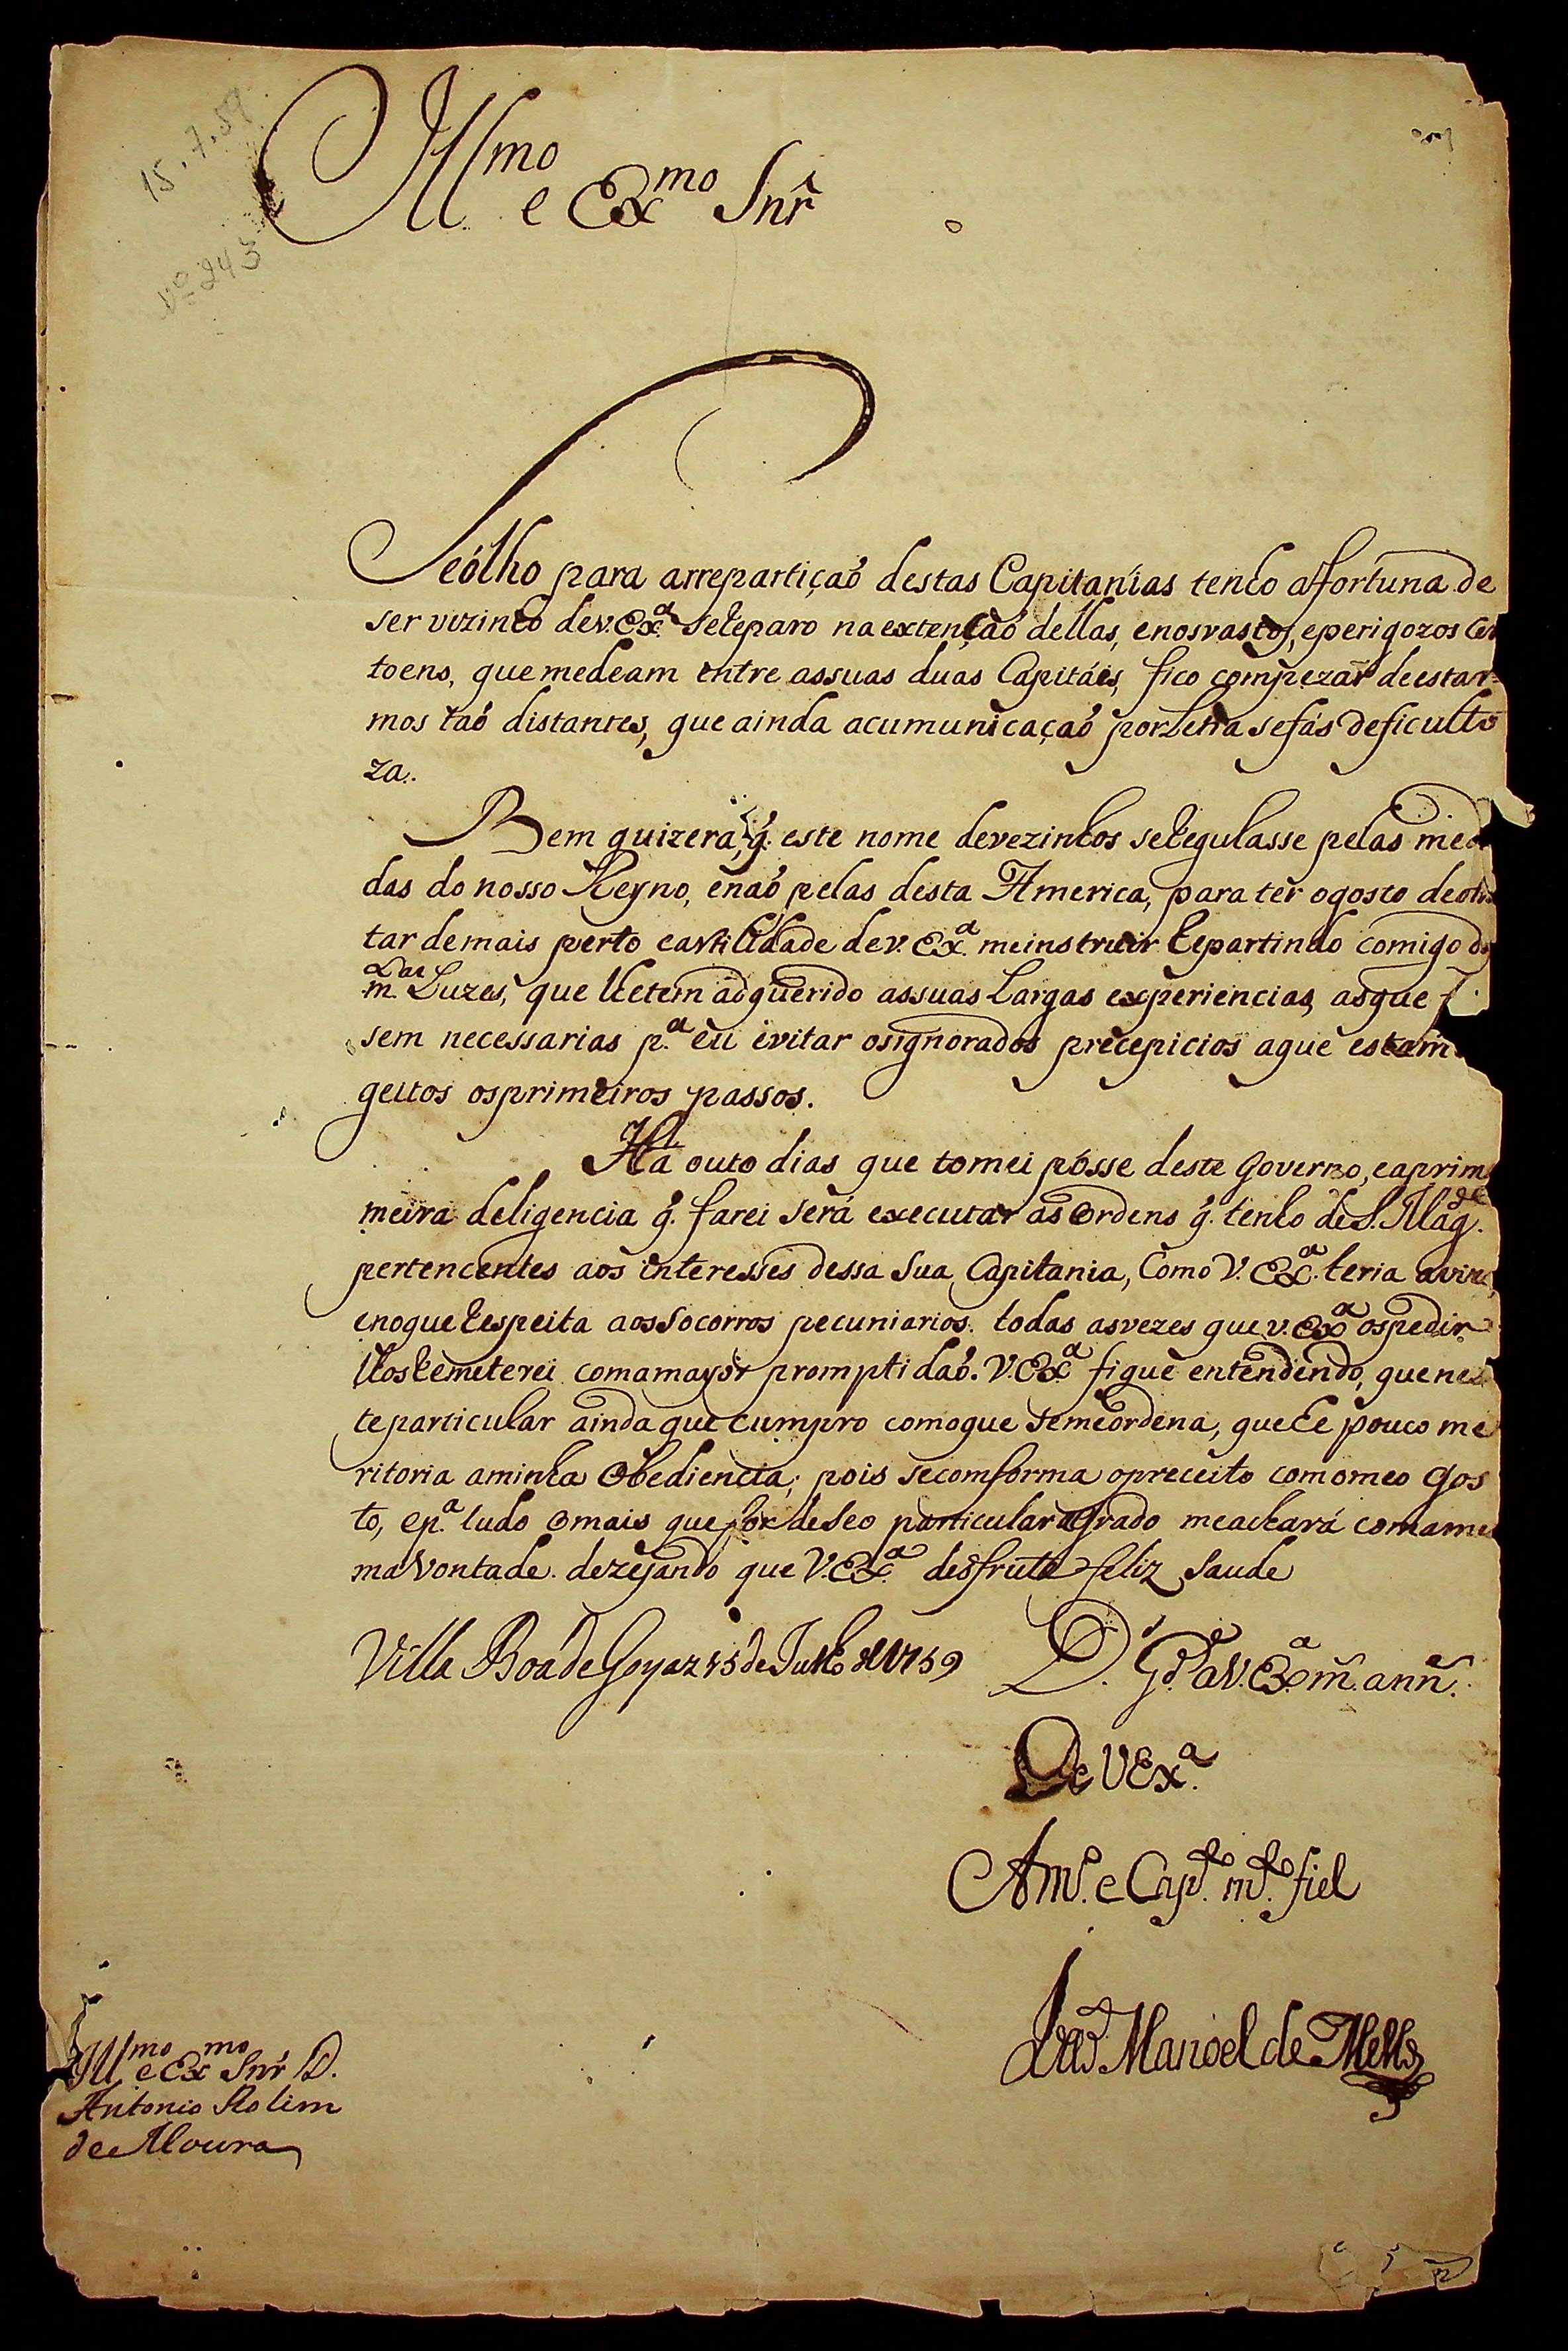 15.7.59
Nº 243
Ill.mo e Ex.mo Snr̃
Se ólho para arrepartiçaõ destas Capitanías tenho affortuna de
ser vizinho de V. Ex.ª se reparo na extençaõ dellas, enosvastos, eperigozos Cer
toens, que medeam entre assuas duas Capitáes, fico compezar deestar-
mos taõ distantes, que ainda acumunicaçaõ porLetra sefás deficulto
za.
Bem quizera, q̃. este nome devezinhos seregulasse pelas med
das do nosso Reyno, enaõ pelas desta America, para ter ogosto de
tar demais perto eaVtilidade de V. Ex.ª meinstruir repartindo comigo d
m.tas Luzes, que lhetem adquerido assuas Largas experiencias, asque f
sem necessarias p.ª eu evitar osignorados precepicios aque estam
geitos osprimeiros passos.
Há outo dias que tomei pósse deste Governo, eaprim
meira deligencia q̃. farei será executar as Ordens q̃. tenho de S. Mag.de
pertencentes aos interesses dessa Sua Capitania, Como V. Ex.ª teria
enoque respeita aos Socorros pecuniarios. todas asvezes que V. Ex.ª ospedir
lhos remeterei comamayor promptidaõ. V. Ex.ª fique entendendo, quenes
teparticular aindaque cumpro comoque semeordena, quehe pouco me
ritoria aminha Obediencia; pois secomforma opreceito comomeo Gos
to, ep.ª tudo Omais que for deSeo particular agrado meachará comame
ma Vontade. dezejando que V. Ex.ª desfrute feliz Saude
Villa Boa de Goyaz 15 de Julho de 1759 D.s G.de a V. Ex.ª m.s ann.s
De V Ex.ª
Am.º e Cap.to m.to fiel
Joaõ Manoel de Mello
Ill.mo e Ex.mo Snr̃ D.
Antonio Rolim
de Moura